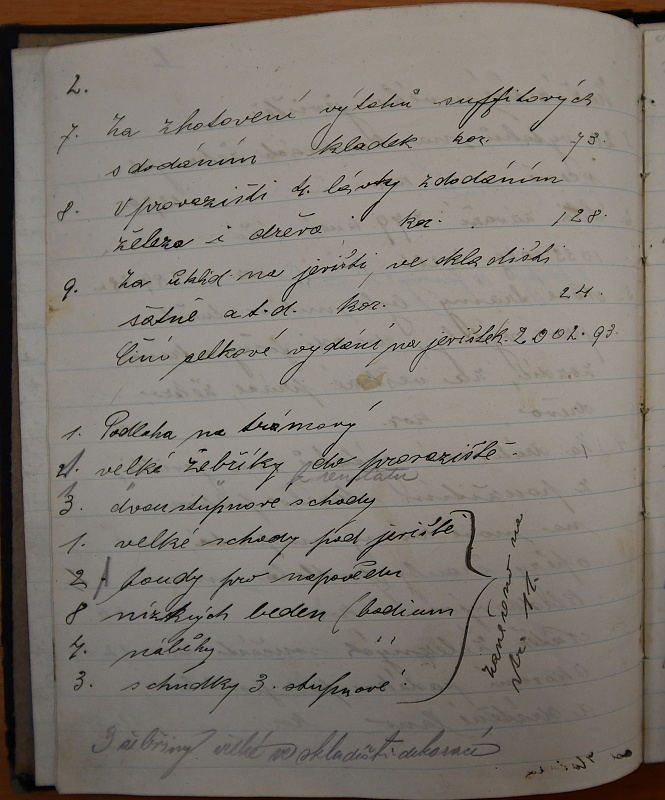 2.
7. Za zhotovení výtahů suffitových
s dodáním kladek kor. 73.
8. V provazišti 2. lávky z dodáním
železa i dřeva kor. 128.
9. Za úklid na jevišti, ve skladišti
šatně a.t.d. kor. 24.
Činí celkové vydání na jeviště k. 2002.93.
1. Podloha na trámový
2. velké žebříky do provaziště.
3. dvou stupnové schody
1. velké schody pod jeviště
2. boudy pro nápovědu
8 nízkých beden (podium
7. náběhy
3. schudky 3. stupnové
zanešeno na
str. 12.
3 velké ve skladišti dekorací